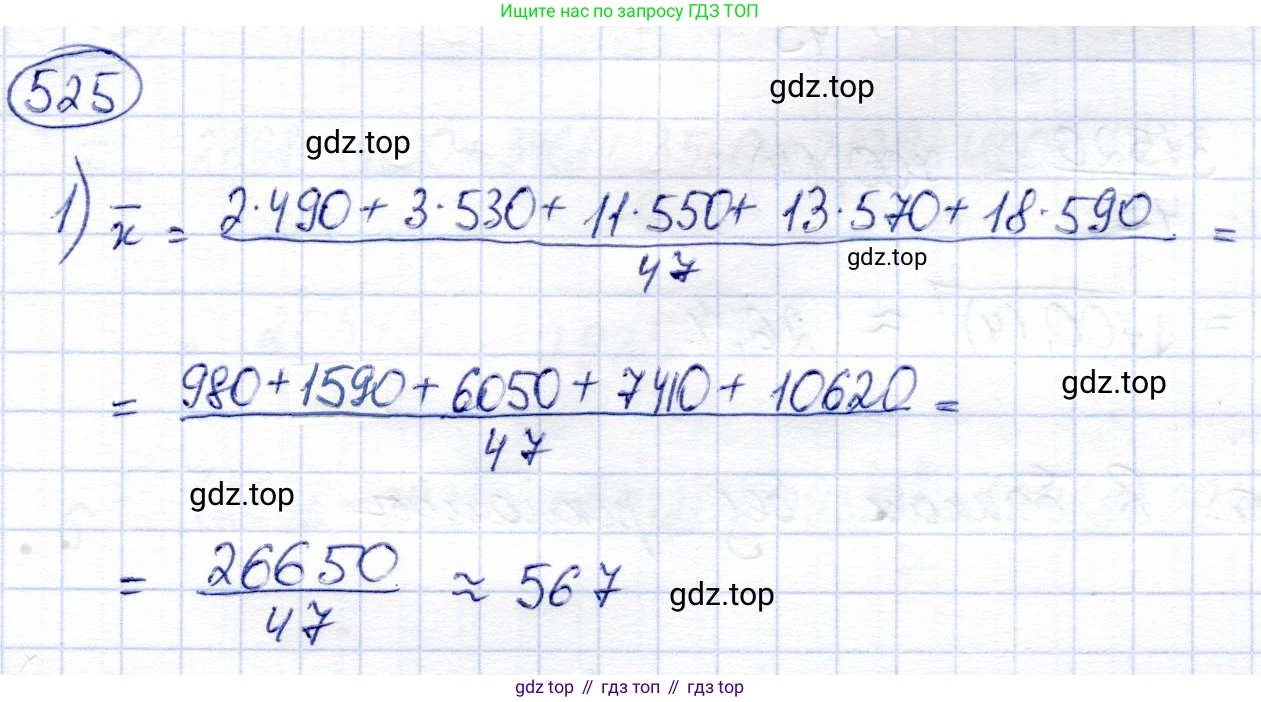 Ищите нас по запросу ГДЗ ТОП
525
gdz.top
gdz.top
1) x̄ = (2·490 + 3·530 + 11·550 + 13·570 + 18·590) / 47 =
gdz.top
= (980 + 1590 + 6050 + 7410 + 10620) / 47 =
gdz.top
gdz.top
= 26650 / 47 ≈ 567
gdz.top
gdz top // гдз топ // gdz top